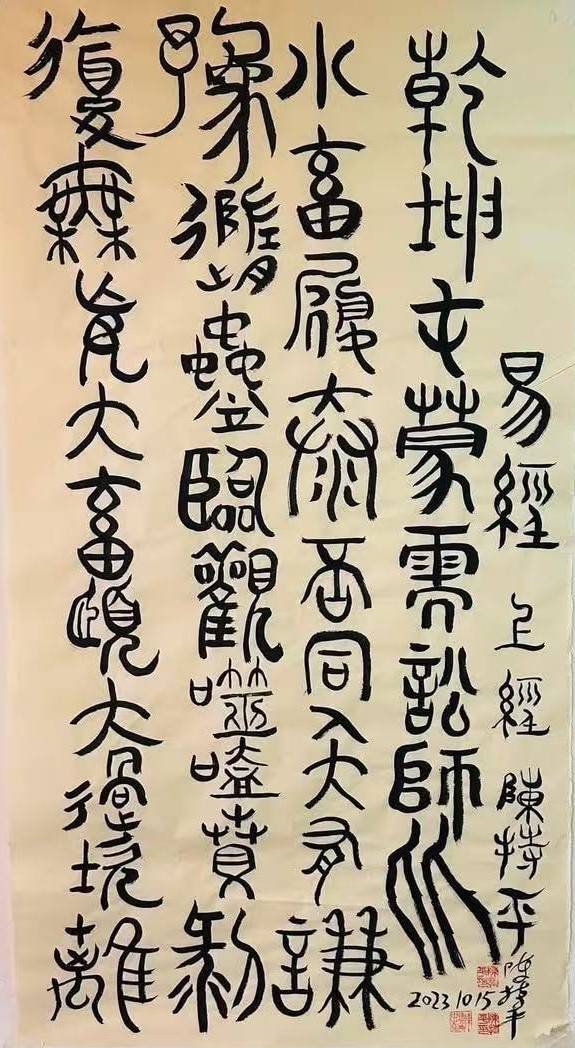 易經 上經 陳持平
陳持平
2023 10 15
乾坤屯蒙需訟師比
小畜履泰否同人大有謙
豫隨蠱臨觀噬嗑賁剝
復無妄大畜頤大過坎離